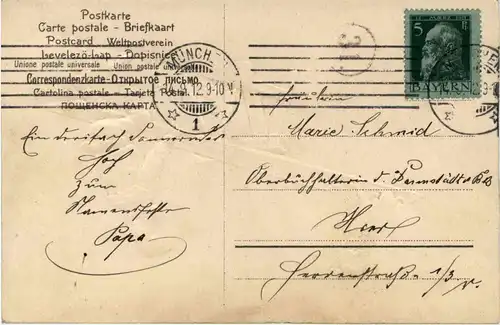 Postkarte
Carte postale – Briefkaart
Postcard Weltpostverein
Levelező-Lap – Dopisnice
Unione postale universale Union postale universelle
Correspondenzkarte – Открытое письмо
Cartolina postale – Tarjeta Postal
ПОЩЕНСКА КАРТА
MÜNCHEN
12.9-10 V
1
31
5 Pf
BAYERN
Fräulein
Marie Schmid
Oberbuchhalterin d. Darmstädter Bk
Hier
Herrenstraße 1/3 r.
Ein dreifach
Hoch
zum
Namensfeste
Papa